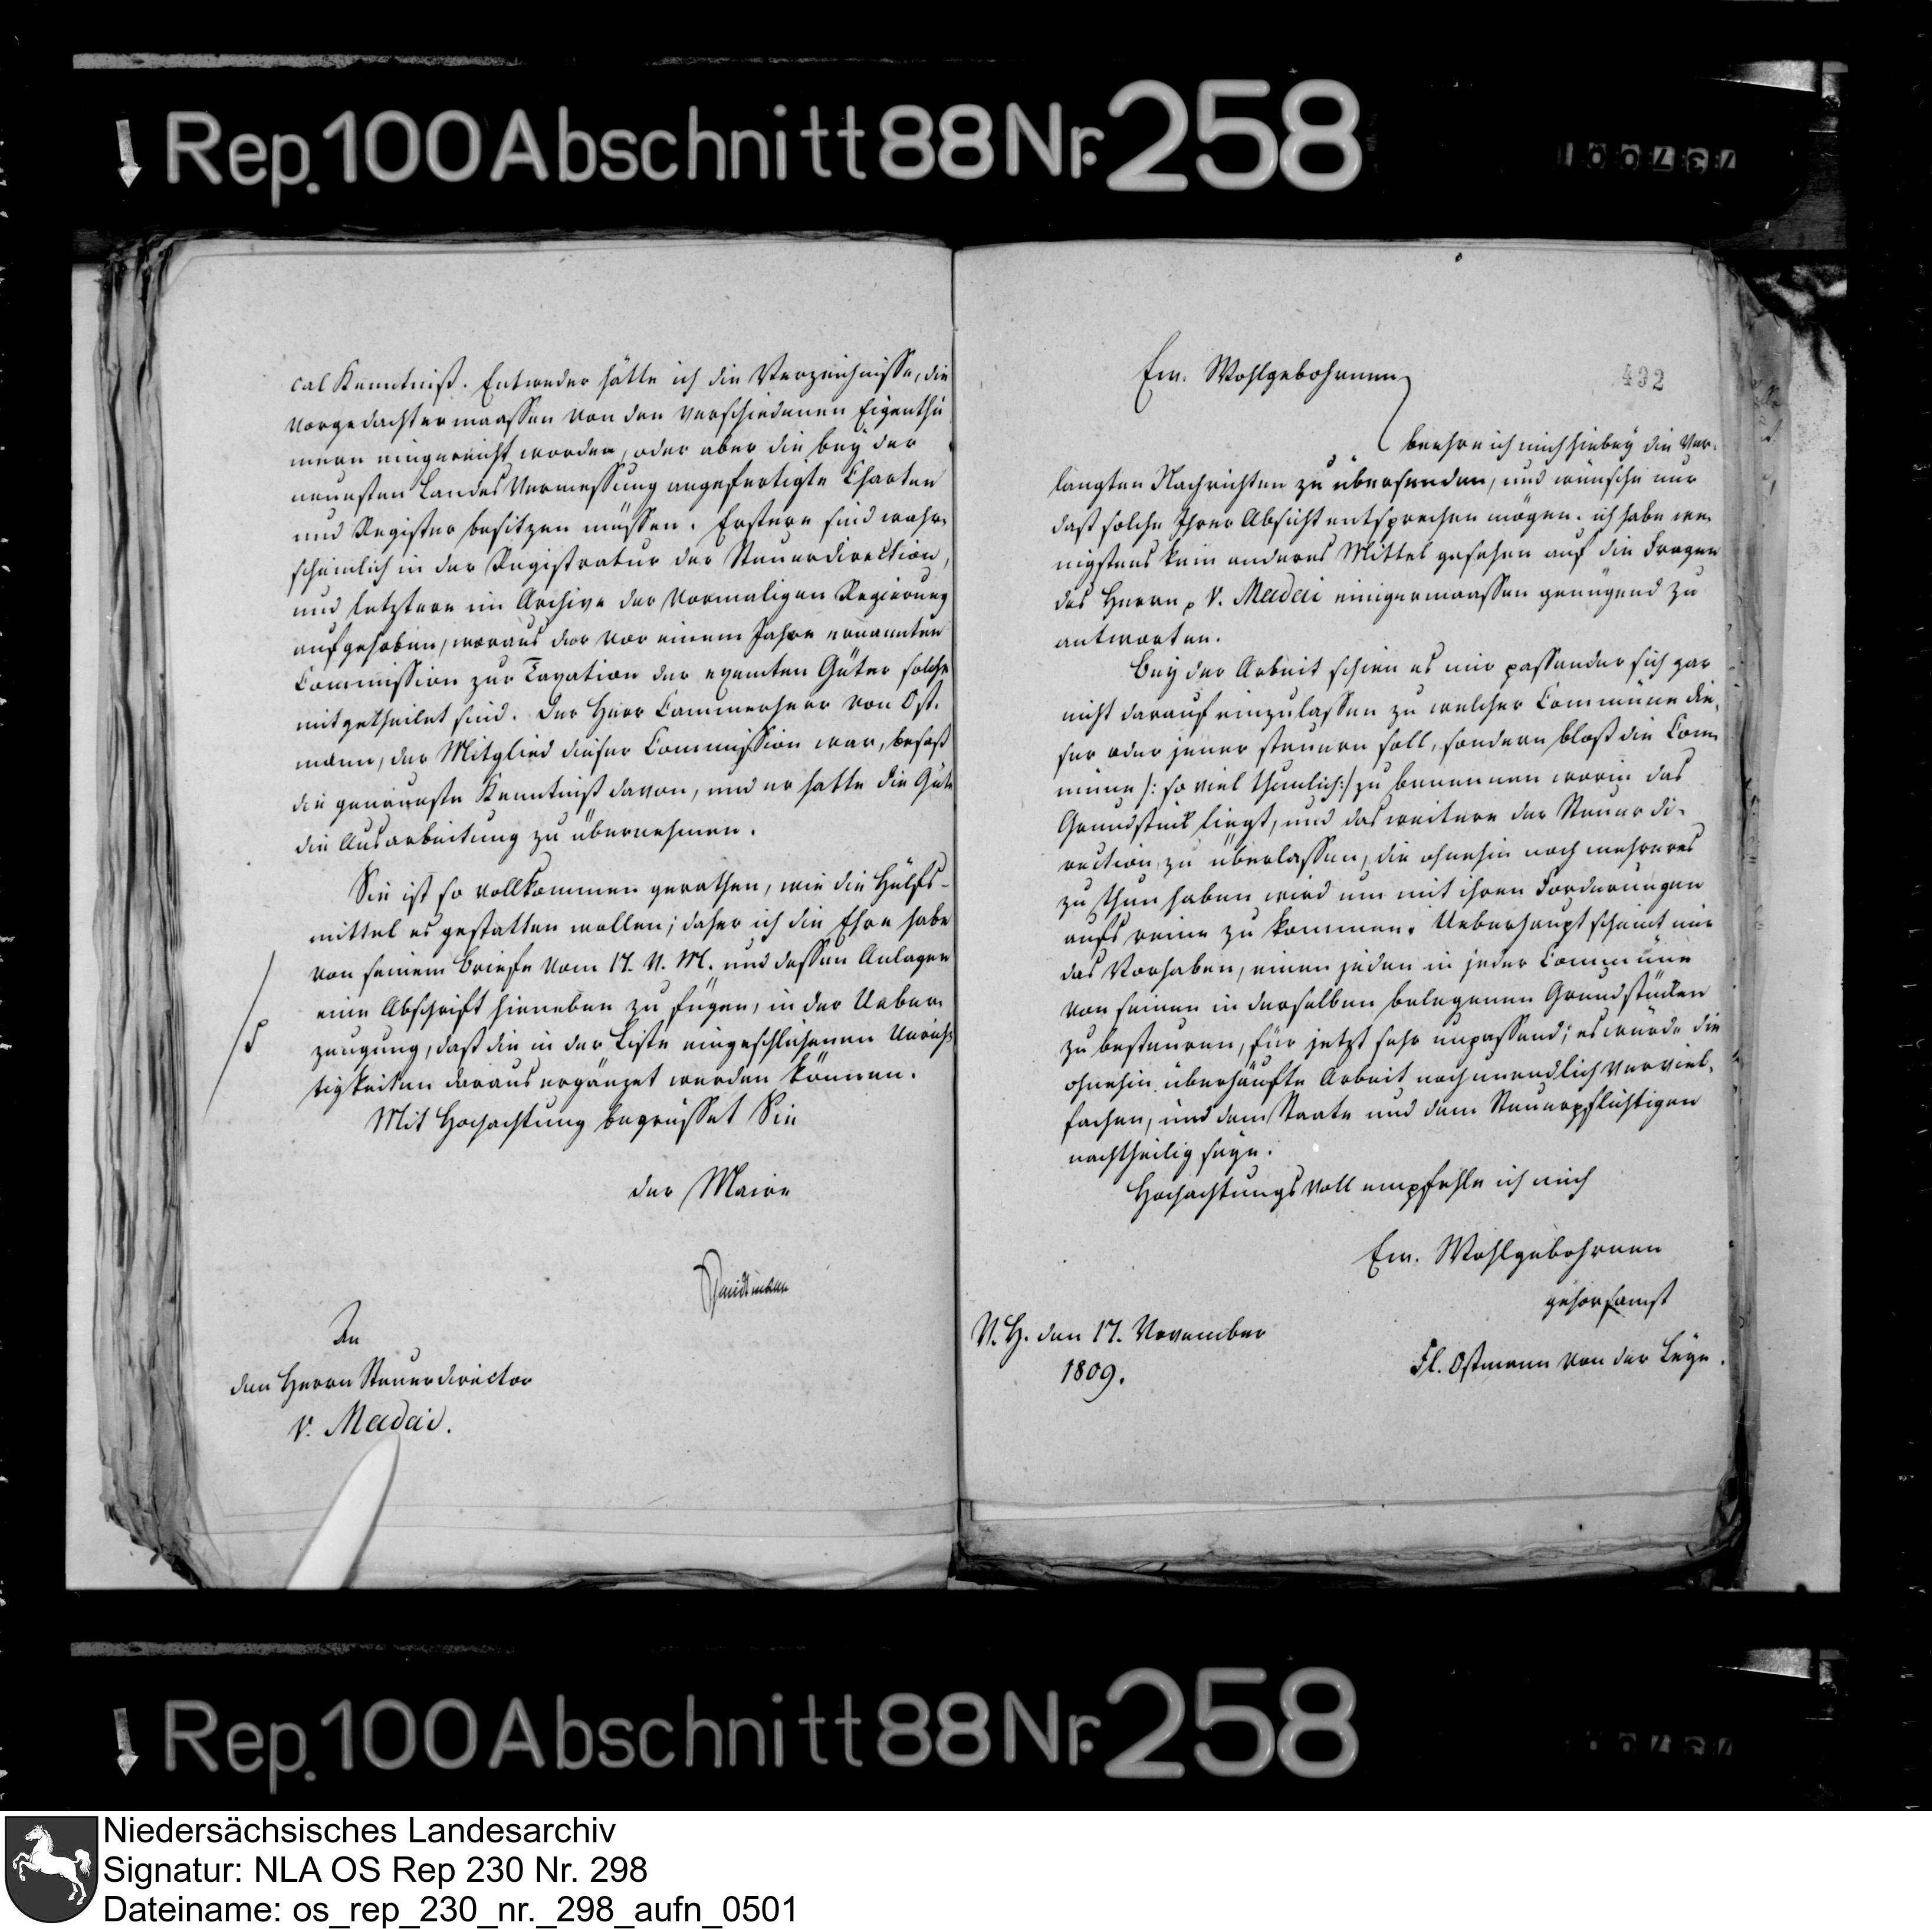 Rep. 100 Abschnitt 88 Nr. 258
cal Kenntniß. Entweder hätte ich die Verzeichnisse, die
vorgedachtermaassen von den verschiedenen Eigenthü
mern eingereicht worden, oder aber die bey der
neuesten Landes Vermessung angefertigte Charten
und Register besitzen müssen. Erstere sind wahr-
scheinlich in der Registratur der Steuerdirection,
und letztere im Archive der vormaligen Regierung
aufgehoben, woraus der vor einem Jahre ernannten
Commission zur Taxation der exemten Güter solche
mitgetheilet sind. Der Herr Cammerherr von Ost-
mann, der Mitglied dieser Commission war, besaß
die genaueste Kenntniß davon, und er hatte die Güte
die Ausarbeitung zu übernehmen.
Sie ist so vollkommen gerathen, wie die Hülfs-
mittel es gestatten wollen; daher ich die Ehre habe
von seinem Briefe vom 17. N. M. und dessen Anlagen
eine Abschrift hieneben zu fügen, in der Ueber-
zeugung, daß die in der Liste eingeschlichenen Unrich
tigkeiten daraus ergänzet werden können.
Mit Hochachtung begrüsset Sie
der Maire
An
den Herrn Steuerdirector
v. Madai.
492
Ew. Wohlgebohrnen
beehre ich mich hiebey die ver-
langten Nachrichten zu übersenden, und wünsche nur
daß solche Ihrer Absicht entsprechen mögen. ich habe we-
nigstens kein anderes Mittel gesehen auf die Fragen
des Herrn p v. Madai einigermaassen genügend zu
antworten.
Bey der Arbeit schien es mir passender sich gar
nicht darauf einzulassen zu welcher Commüne die-
ser oder jener steuern soll, sondern bloß die Com-
müne /: so viel thunlich :/ zu benennen worin das
Grundstück liegt, und das weitere der Steuer di-
rection zu überlassen, die ohnehin noch mehreres
zu thun haben wird um mit ihren Forderungen
aufs reine zu kommen. Ueberhaupt scheint mir
das Vorhaben, einen jeden in jeder Commüne
von seinen in derselben belegenen Grundstücken
zu besteuren, für jetzt sehr unpassend; es würde die
ohnehin überhäufte Arbeit noch unendlich verviel-
fachen, und dem Staate und dem Steuerpflichtigen
nachtheilig seyn.
Hochachtungsvoll empfehle ich mich
Ew. Wohlgebohrnen
gehorsamst
N. H. den 17. November
1809.
Fl. Ostmann von der Leye.
Rep. 100 Abschnitt 88 Nr. 258
Niedersächsisches Landesarchiv
Signatur: NLA OS Rep 230 Nr. 298
Dateiname: os_rep_230_nr._298_aufn_0501